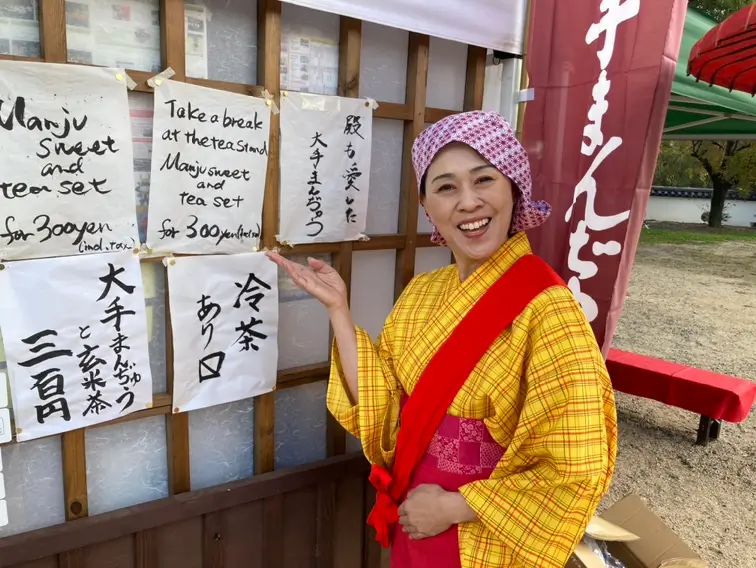 Manju
sweet
and
tea set
for 300yen
(incl. tax)
Take a break
at the tea stand
Manju sweet
and
tea set
for 300yen (incl. tax)
殿も愛した
大手まんぢゅう
大手まんぢゅう
と玄米茶
三百円
冷茶
あり〼
手まんぢゅ